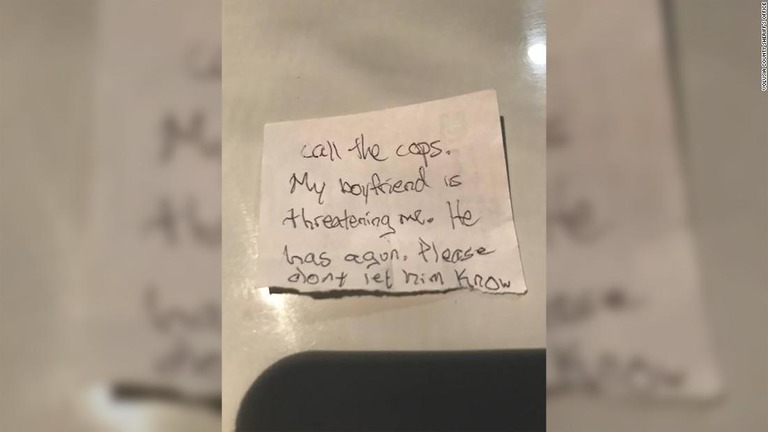 call the cops.
My boyfriend is
threatening me. He
has a gun. Please
dont let him know
VOLUSIA COUNTY SHERIFF'S OFFICE